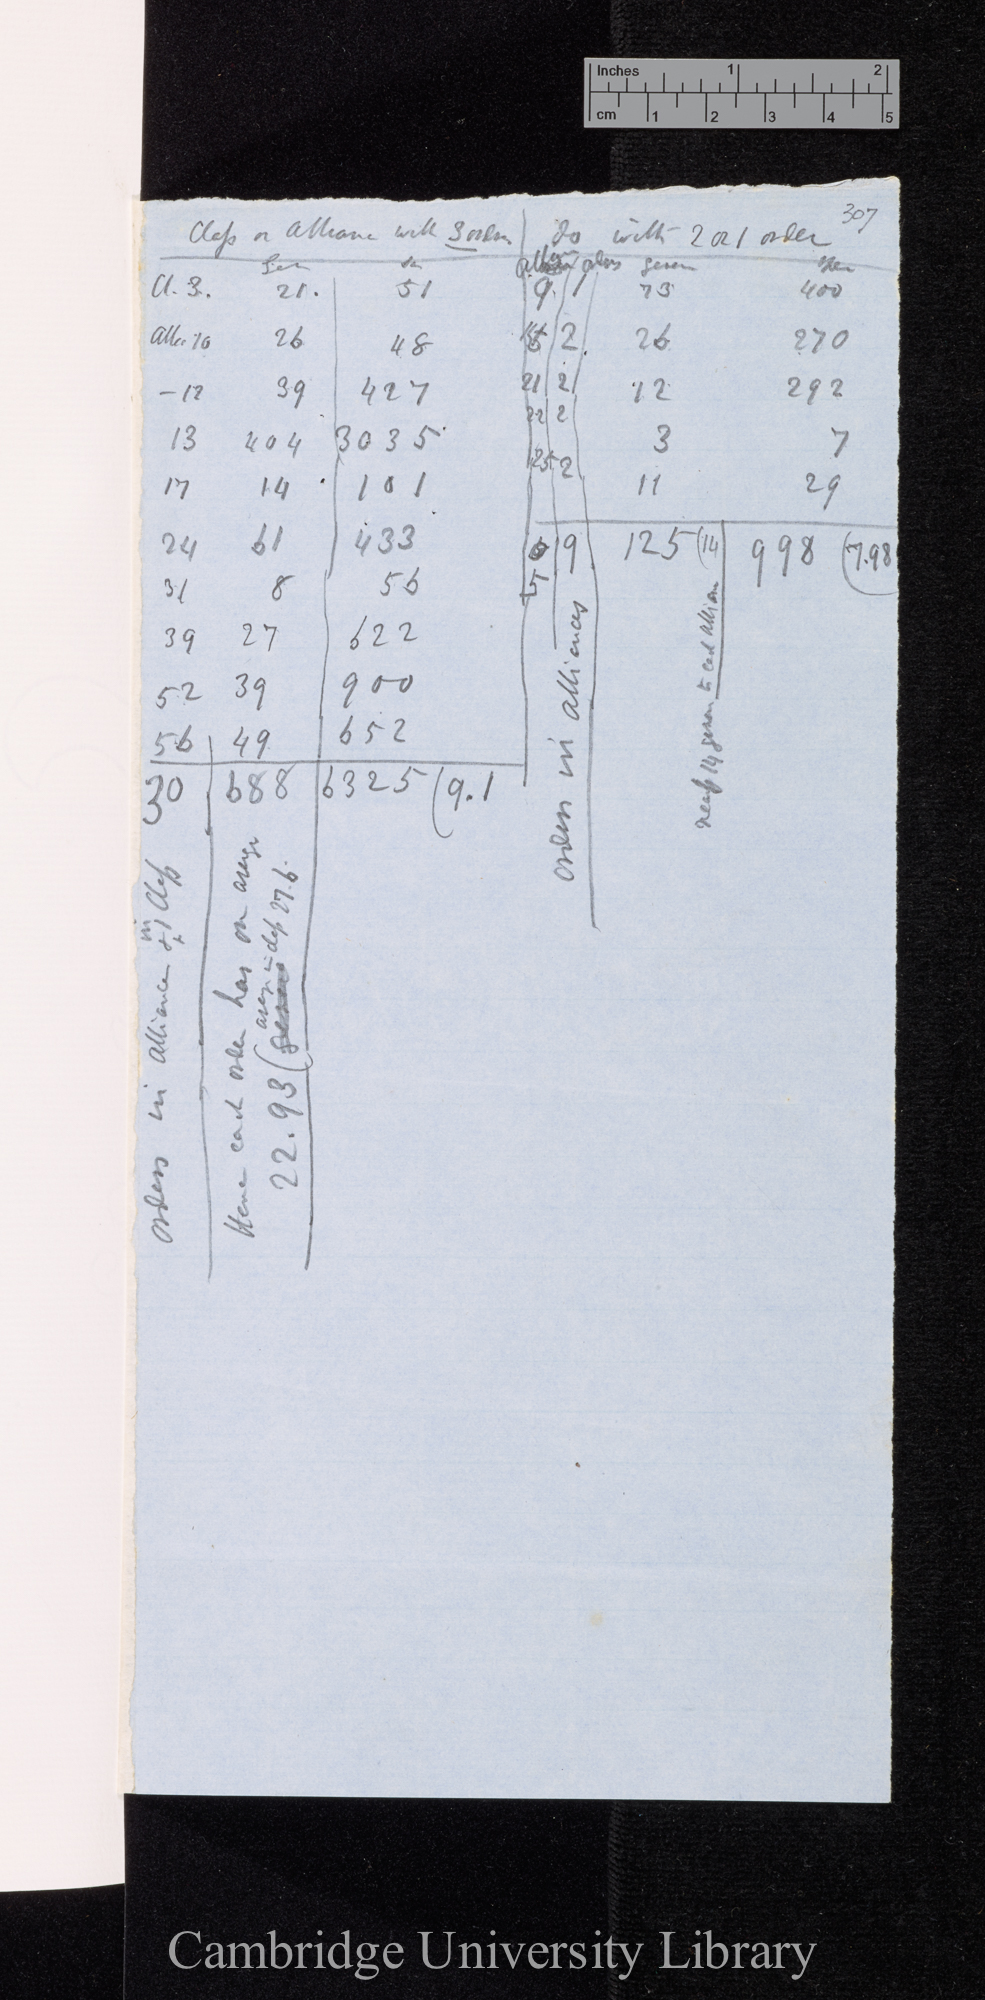 Inches 1 2
cm 1 2 3 4 5
307
Class or Alliance with 3 orders
Do with 2 or 1 order
Gen
genera
Cl. 3. 21. 51
26 48
-12 39 427
13 404 3035
17 14 101
24 61 433
31 8 56
39 27 622
52 39 900
56 49 652
30 688 6325 (9.1
9. 1 73 400
2 26 270
21 2 12 292
22 2 3 7
25 2 11 29
5 9 125 (14 998 (7.98
orders in alliance in 1 Class
Hence each order has on average
22.93 (average in class 27.6.
orders in alliances
nearly 14 genera to each alliance
Cambridge University Library